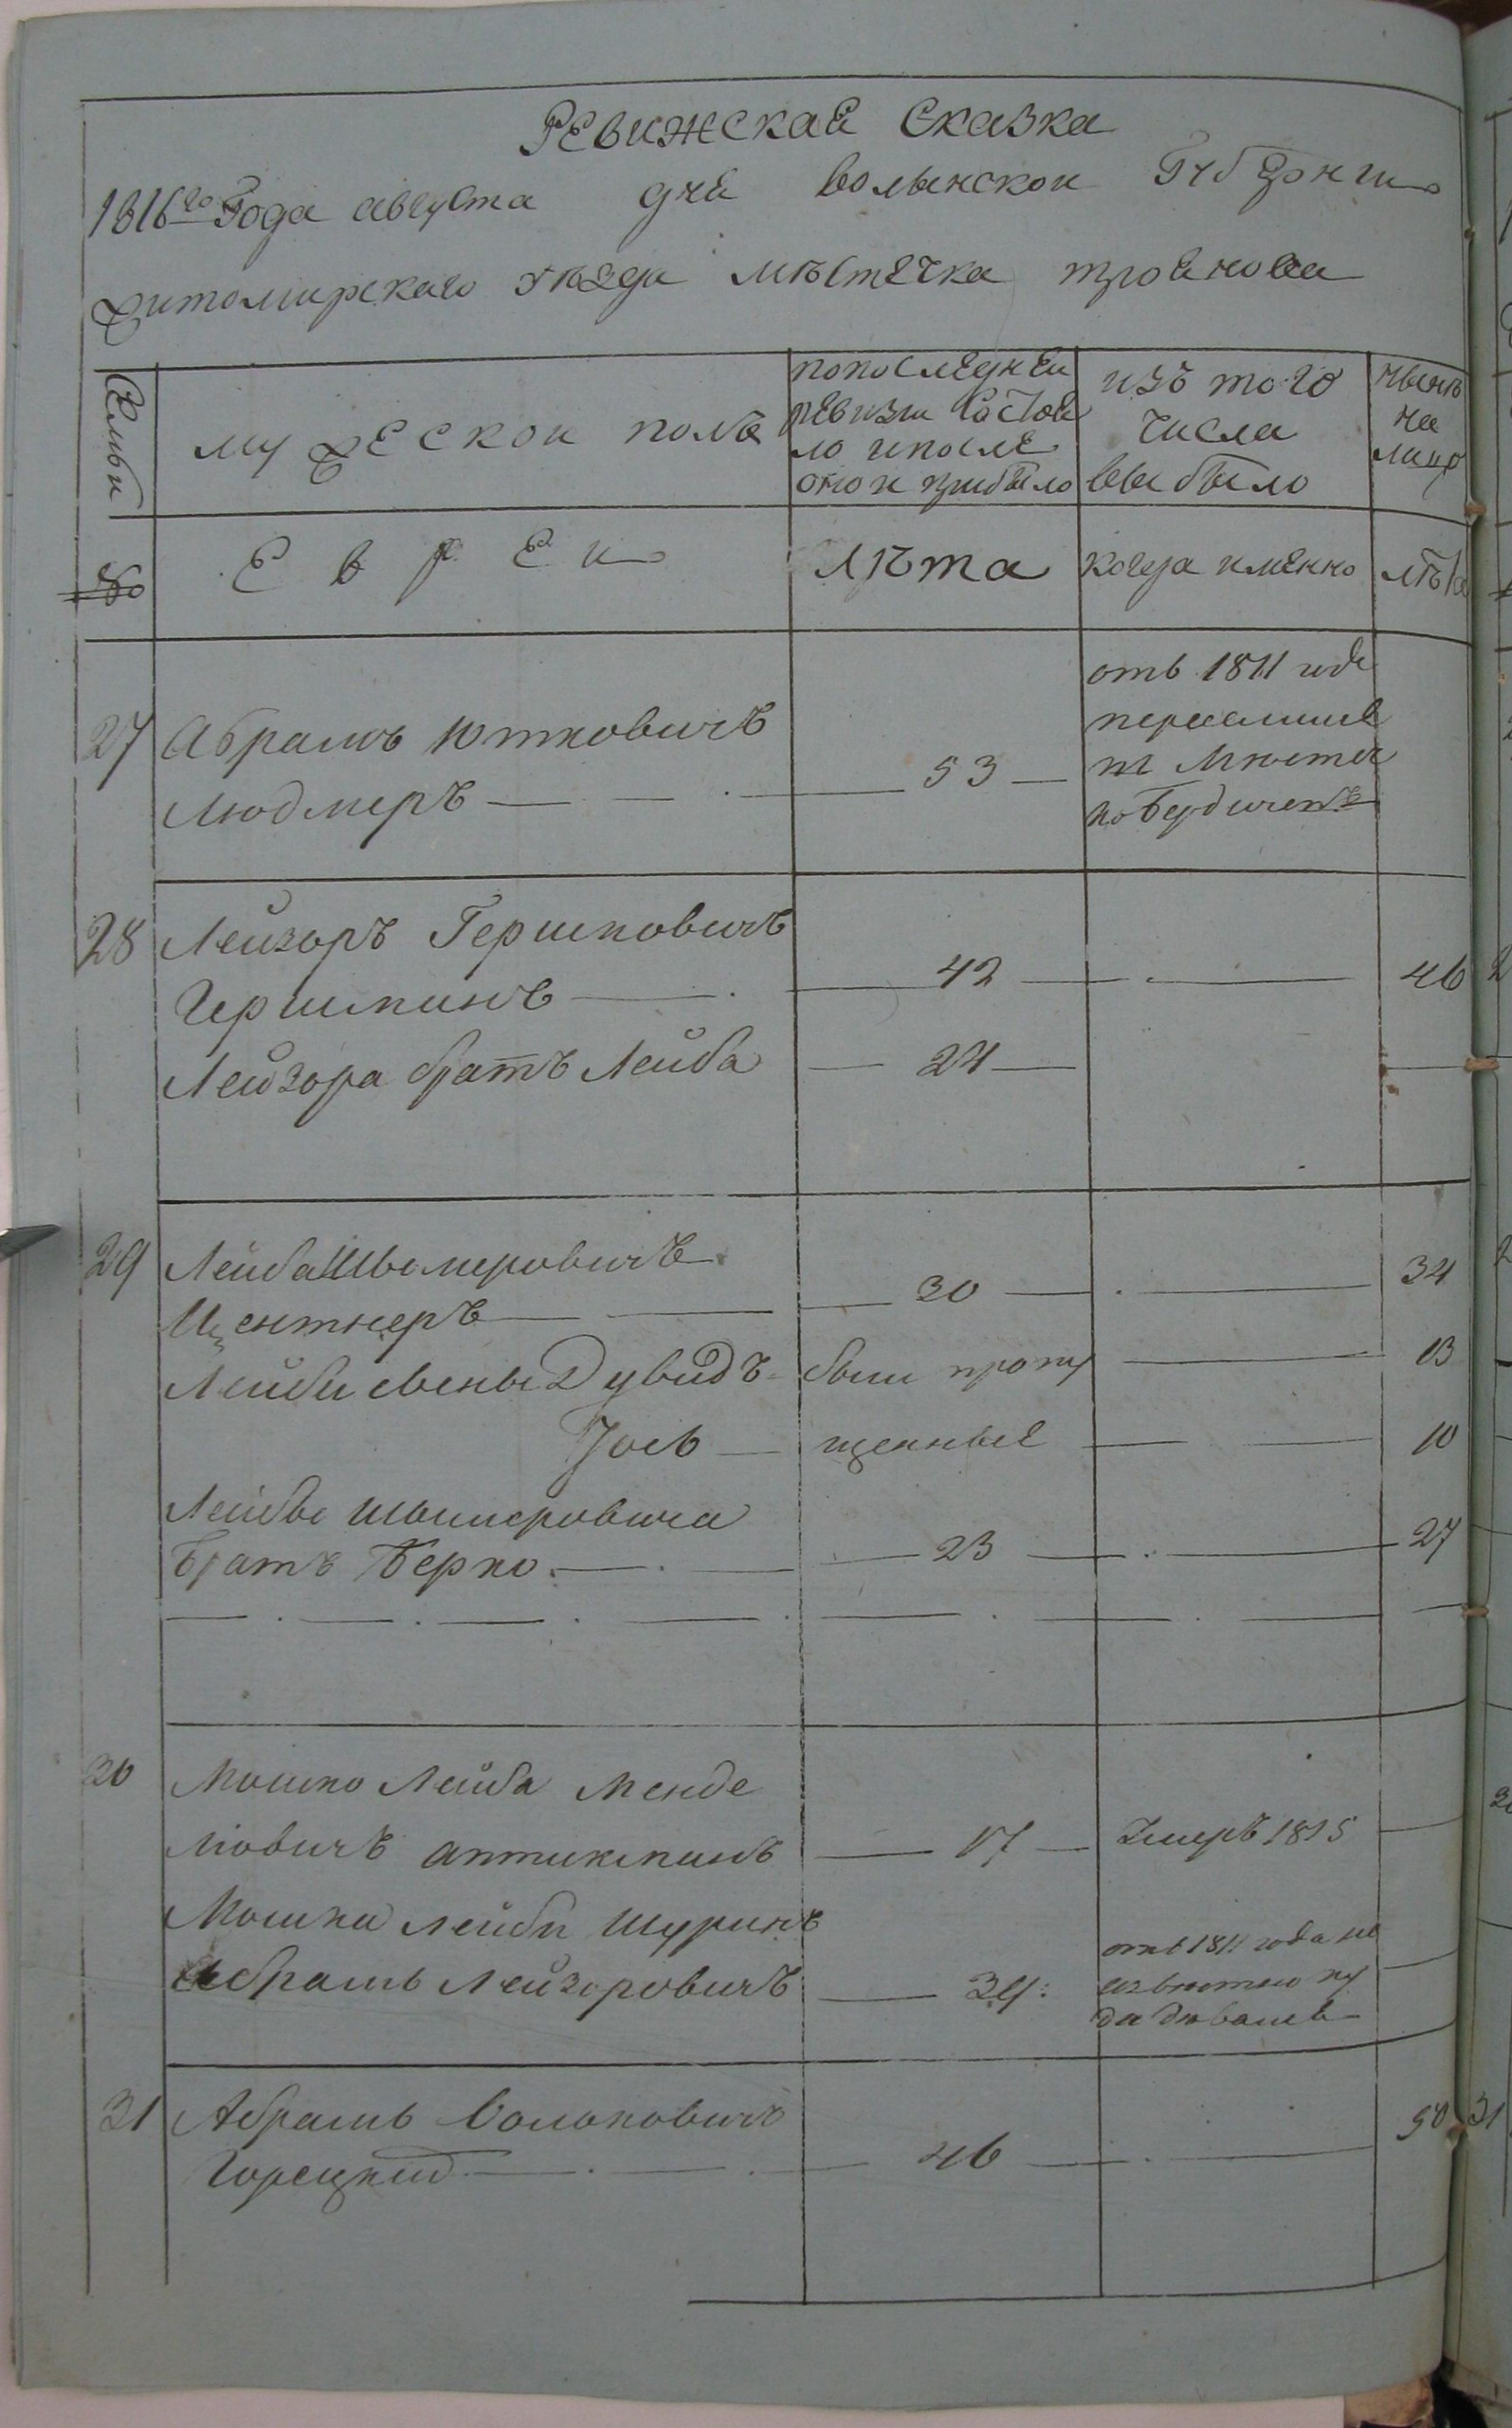 Ревижская Сказка
1816го Года августа дня волынской Губернии
житомирскаго уезда мѣстечка троянова
Семьи
мужеской полъ
попоследней
ревизии состоя
ло ипосле
оной прибыло
изъ того
числа
выбыло
нынѣ
на
лицо
№
Евреи
Лѣта
когда именно
лѣта
27 Абрамъ Ютковичъ
Людмеръ — 53 —
отъ 1811 года
переселился
въ Мѣстеч
ко Бердичевъ
28 Лейзоръ Гершковичъ
Гершманъ — 42 — 46
Лейзора братъ Лейба — 24 —
29 Лейба Шмеровичъ
Центнеръ — 30 — 34
Лейбы сыны Дувидъ были пропу — 13
Iось — щенные — 10
Лейбы Шмеровича
Братъ Берко — 23 — 27
30 Мошко Лейба Менде
лiовичъ аптикманъ — 17 — Умеръ 1815
Мошка Лейбы Шуринъ
Абрамъ Лейзоровичъ — 34
отъ 1811 года не
извѣстно ку
да дѣвался
31 Абрамъ Волковичъ
Горецкий — 46 — 50
31